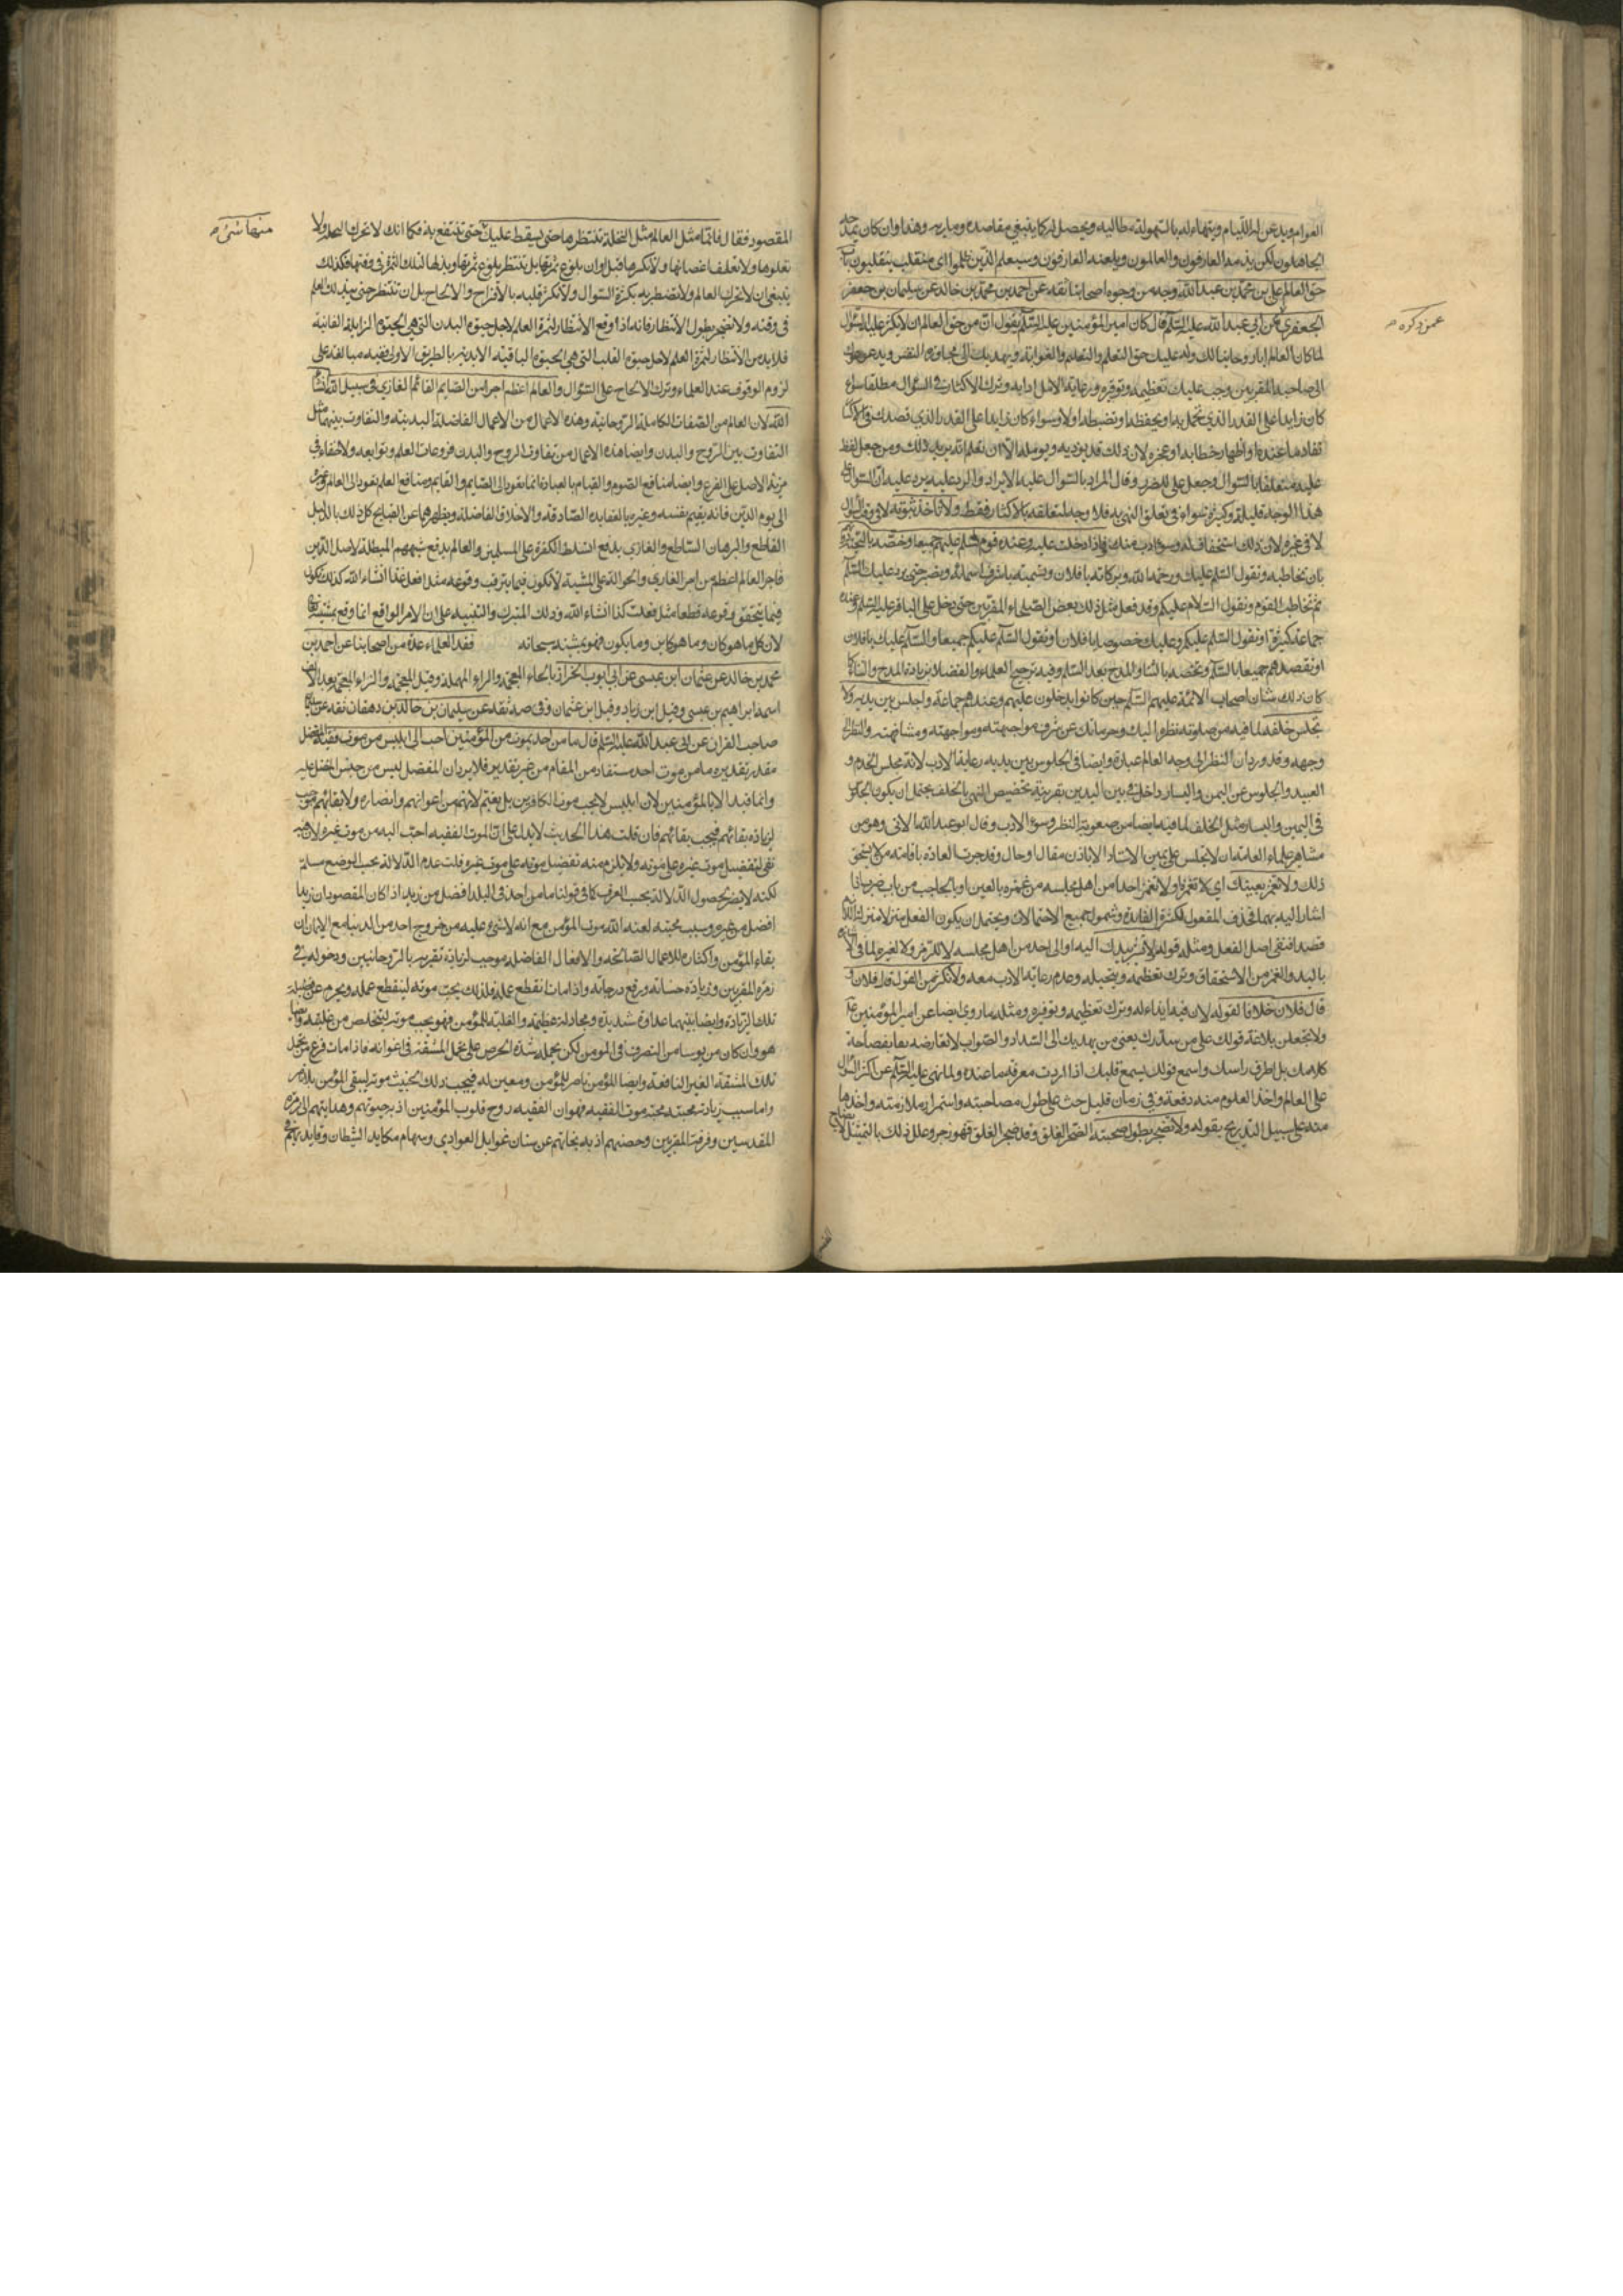 العوام ويدعن له اللئام ويتهيأ له بالسهولة مطالبه ويحصل له كما ينبغي مقاصده ومآربه وهذا وان كان يمدحه
الجاهلون لكن يذمه العارفون والعالمون ويلعنه العارفون وسيعلم الذين ظلموا اى منقلب ينقلبون باب
حق العالم علي بن محمد بن عبد الله وجه من وجوه اصحابنا ثقه عن احمد بن محمد بن خالد عن سليمان بن جعفر
الجعفري عمن ذكره عن ابي عبد الله عليه السلم قال كان امير المؤمنين عليه السلم يقول ان من حق العالم ان لا تكثر عليه السؤال
لما كان العالم ابا روحانيا لك وله عليك حق التعلم والتعليم والغوايه ويهديك الى
الى صاحبه المقربين وجب عليك تعظيمه وتوقيره ورعاية الادب لديه وترك الاكثار في السؤال مطلقا سواء
كان زايدا على القدر الذي تحمله وتحفظه وتضبطه اولا وسواء كان زايدا على القدر الذي قصدك
نفاد ما عنده او اظهار خطائه او عجزه لان ذلك قد يوذيه ويومله الا ان تعلم انه يريد ذلك ومن جعل لفظ
عليه متعلقا بالسؤال وجعل على للضرر وقال المراد بالسؤال عليه الايراد والرد عليه يرد عليه ان السؤال على
هذا الوجه قليله وكثيره سواء في تعلق النهي به فلا وجه لتعلقه بالاكثار فقط ولا تأخذ بثوبه
لا في غيره لان ذلك استخفاف له وسوء ادب منك واذا دخلت عليه وعنده قوم فسلم عليهم جميعا وخصه بالتحية
بان تخاطبه وتقول السلم عليك ورحمة الله وبركاته يا فلان وتسميه باشرف اسمائه وتصبر حتى يرد عليك السلم
ثم تخاطب القوم وتقول السلام عليكم وقد فعل مثل ذلك بعض الصلحاء المقربين حتى دخل على الباقر عليه السلم وعنده
جماعة كثيرة او تقول السلم عليكم وعليك خصوصا يا فلان او تقول السلم عليكم جميعا والسلم عليك يا فلان
او تقصدهم جميعا بالسلم وتخصه بالثناء والمدح بعد السلم وفيه ترجيح العلماء والفضلاء بزيادة المدح والثناء كما
كان ذلك شان اصحاب الائمة عليهم السلم حين كانوا يدخلون عليهم وعندهم جماعة واجلس بين يديه ولا
تجلس خلفه لما فيه من صعوبة نظره اليك وحرمانك عن شرف مواجهته ومشافهته والنظر الى
وجهه وقد ورد ان النظر الى وجه العالم عبادة وايضا في الجلوس بين يديه رعاية الادب لانه مجلس الخدم و
العبيد والجلوس عن اليمين واليسار داخل في بين اليدين بقرينة تخصيص النهي بالخلف ويحتمل ان يكون الجلوس
في اليمين واليسار مثل الخلف لما فيه ايضا من صعوبة النظر وسوء الادب وقال ابو عبد الله الابي وهو من
مشاهير علماء العامه ان لا تجلس على يمين الاستاد الا باذن مقال او حال وقد جرت العادة باقامة من لا يستحق
ذلك ولا تغمز بعينك اي لا تغمزه او لا تغمز احدا من اهل مجلسه من غمزه بالعين او بالحاجب من باب ضرب اذا
اشار اليه بهما فحذف المفعول لكثرة الفايدة وشمول جميع الاحتمالات ويحتمل ان يكون الفعل منزلا منزلة اللازم
قصدا لنفي اصل الفعل ومثله قوله ولا تشر بيدك اليه او الى احد من اهل مجلسه لا للرمز ولا لغيره لما في الاشارة
باليد والغمز من الاستحقاق وترك تعظيمه وتبجيله وعدم رعاية الادب معه ولا تكثر من القول قال فلان و
قال فلان خلافا لقوله لان فيه ايذاء له وترك تعظيمه وتوقيره ومثله ما روي ايضا عن امير المؤمنين عليه
ولا تجعلن بلاغة قولك على من سددك يعني من يهديك الى السداد والصواب لا تعارضه بما بفصاحة
كلامك بل اطرق راسك واسمع قولك بسمع قلبك اذا اردت معرفة ما عنده ولما نهى عليه السلم عن اكثار السؤال
على العالم واخذ العلوم منه دفعة وفي زمان قليل حث على طول مصاحبته واستمرار ملازمته واخذها
منه على سبيل التدريج بقوله ولا تضجر بطول صحبته الضجر القلق وقد ضجر القلق فهو زجر وعلل ذلك بالتمثيل
المقصود فقال فانما مثل العالم مثل النخلة تنتظرها حتى يسقط عليك منها شيء حتى تنتفع به فكما انك لا تحرك النخلة ولا
تعلوها ولا تعلق اغصانها ولا تكسرها قبل اوان بلوغ ثمرتها بل تنتظر بلوغ ثمرتها وبذلها لتلك الثمرة في وقتها فكذلك
ينبغي ان لا تحرك العالم ولا تضطربه بكثرة السؤال ولا تكسر قلبه بالاقتراح والالحاح بل ان تنتظر حتى يبذل لك العلم
في وقته ولا تضجر بطول الانتظار فانه اذا وقع الانتظار لثمرة العلم لاجل حيوة البدن التي هي الحيوة الزايلة الفانية
فلا بد من الانتظار لثمرة العلم لاجل حيوة القلب التي هي الحيوة الباقية الابدية بالطريق الاولى ففيه مبالغة على
لزوم الوقوف عند العلماء وترك الالحاح على السؤال والعالم اعظم اجرا من الصايم القائم الغازي في سبيل الله انشاء
الله لان العالم من الصفات الكاملة الروحانية وهذه الاعمال من الاعمال الفاضلة البدنية والتفاوت بينهما مثل
التفاوت بين الروح والبدن وايضا هذه الاعمال من تفاوت الروح والبدن فروعات العلم وتوابعه ولا خفاء في
مزية الاصل على الفرع وايضا منافع الصوم والقيام بالعبادة انما يعود الى الصايم والقايم ومنافع العلم تعود الى العالم وغيره
الى يوم الدين فانه يقيم نفسه وغيره بالعقايد الصادقة والاخلاق الفاضلة ويطهرهما عن القبايح كل ذلك بالدليل
القاطع والبرهان الساطع والغازي يدفع تسلط الكفرة على المسلمين والعالم يدفع شبههم المبطلة لاصل الدين
فاجر العالم اعظم من اجر الغازي والحوالة على المشية لا تكون فيما يترقب وقوعه مثل افعل غدا انشاء الله كذلك تكون
فيما يتحقق وقوعه قطعا مثل فعلت كذا انشاء الله وذلك للتبرك والتنبيه على ان الامر الواقع انما وقع بمشيته تعالى
لان كل ما هو كان وما هو كاين وما يكون فهو بمشيته سبحانه فقد العلماء عدة من اصحابنا عن احمد بن
محمد بن خالد عن عثمان ابن عيسى عن ابي ايوب الخراز بالخاء المعجمة والراء المهملة وقيل المعجمة والزاء المعجمة بعد الالف
اسمه ابراهيم بن عيسى وقيل ابن زياد وقيل ابن عثمان وفي صه ثقه عن سليمان بن خالد ابن دهقان ثقه عن
صاحب القران عن ابي عبد الله عليه السلم قال ما من احد يموت من المؤمنين احب الى ابليس من موت فقيه المفضل
مقدر تقديره ما من موت احد مستفاد من المقام من غير تقدير فلا يرد ان المفضل ليس من جنس المفضل عليه
وانما قيد الا بالمؤمنين لان ابليس لا يحب موت الكافرين بل يغتم لانهم من اعوانه وانصاره ولا بقائهم موجب
لزيادة بقائهم فيحب بقائهم فان قلت هذا الحديث لا يدل على ان الموت الفقيه احب اليه من موت غيره لان فيه
نفي لتفضيل موت غيره على موته ولا يلزم منه تفضيل موته على موت غيره قلت عدم الدلالة بحسب الوضع مسلم
لكنه لا يضر لحصول الدلالة بحسب العرف كما في قولنا ما من احد في البلد افضل من زيد اذا كان المقصود ان زيدا
افضل من غيره وسبب محبته لعنه الله موت المؤمن مع انه لا شيء عليه من خروج احد من الدنيا مع الايمان ان
بقاء المؤمن واكثاره للاعمال الصالحة والافعال الفاضلة موجب لزيادة تقربه بالروحانيين ودخوله في
زمرة المقربين وزيادة حسناته ورفع درجاته واذا مات انقطع عمله فلذلك يحب موته لينقطع عمله ويحرم عن فضيلة
تلك الزيادة وايضا بينهما عداوة شديدة ومجادلة عظيمة والغلبة للمؤمن فهو يحب موته ليتخلص من غلبته وايضا
هو وان كان من يوسا من التصرف في المومن لكن يحمله شدة الحرص على تحمل المشقة في اغوائه فاذا مات فرغ من تحمل
تلك المشقة الغير النافعة وايضا المؤمن ناصر للمؤمن ومعين له فيحب ذلك الخبيث موته ليبقى المؤمن بلا ناصر
واما سبب زيادة محبته موت الفقيه فهو ان الفقيه روح قلوب المؤمنين اذ به حيوتهم وهدايتهم الى زمرة
المقدسين وفرقة المقربين وحصنهم اذ به نجاتهم عن سنان غوايل العوادي وسهام مكايد الشيطان وقايدهم